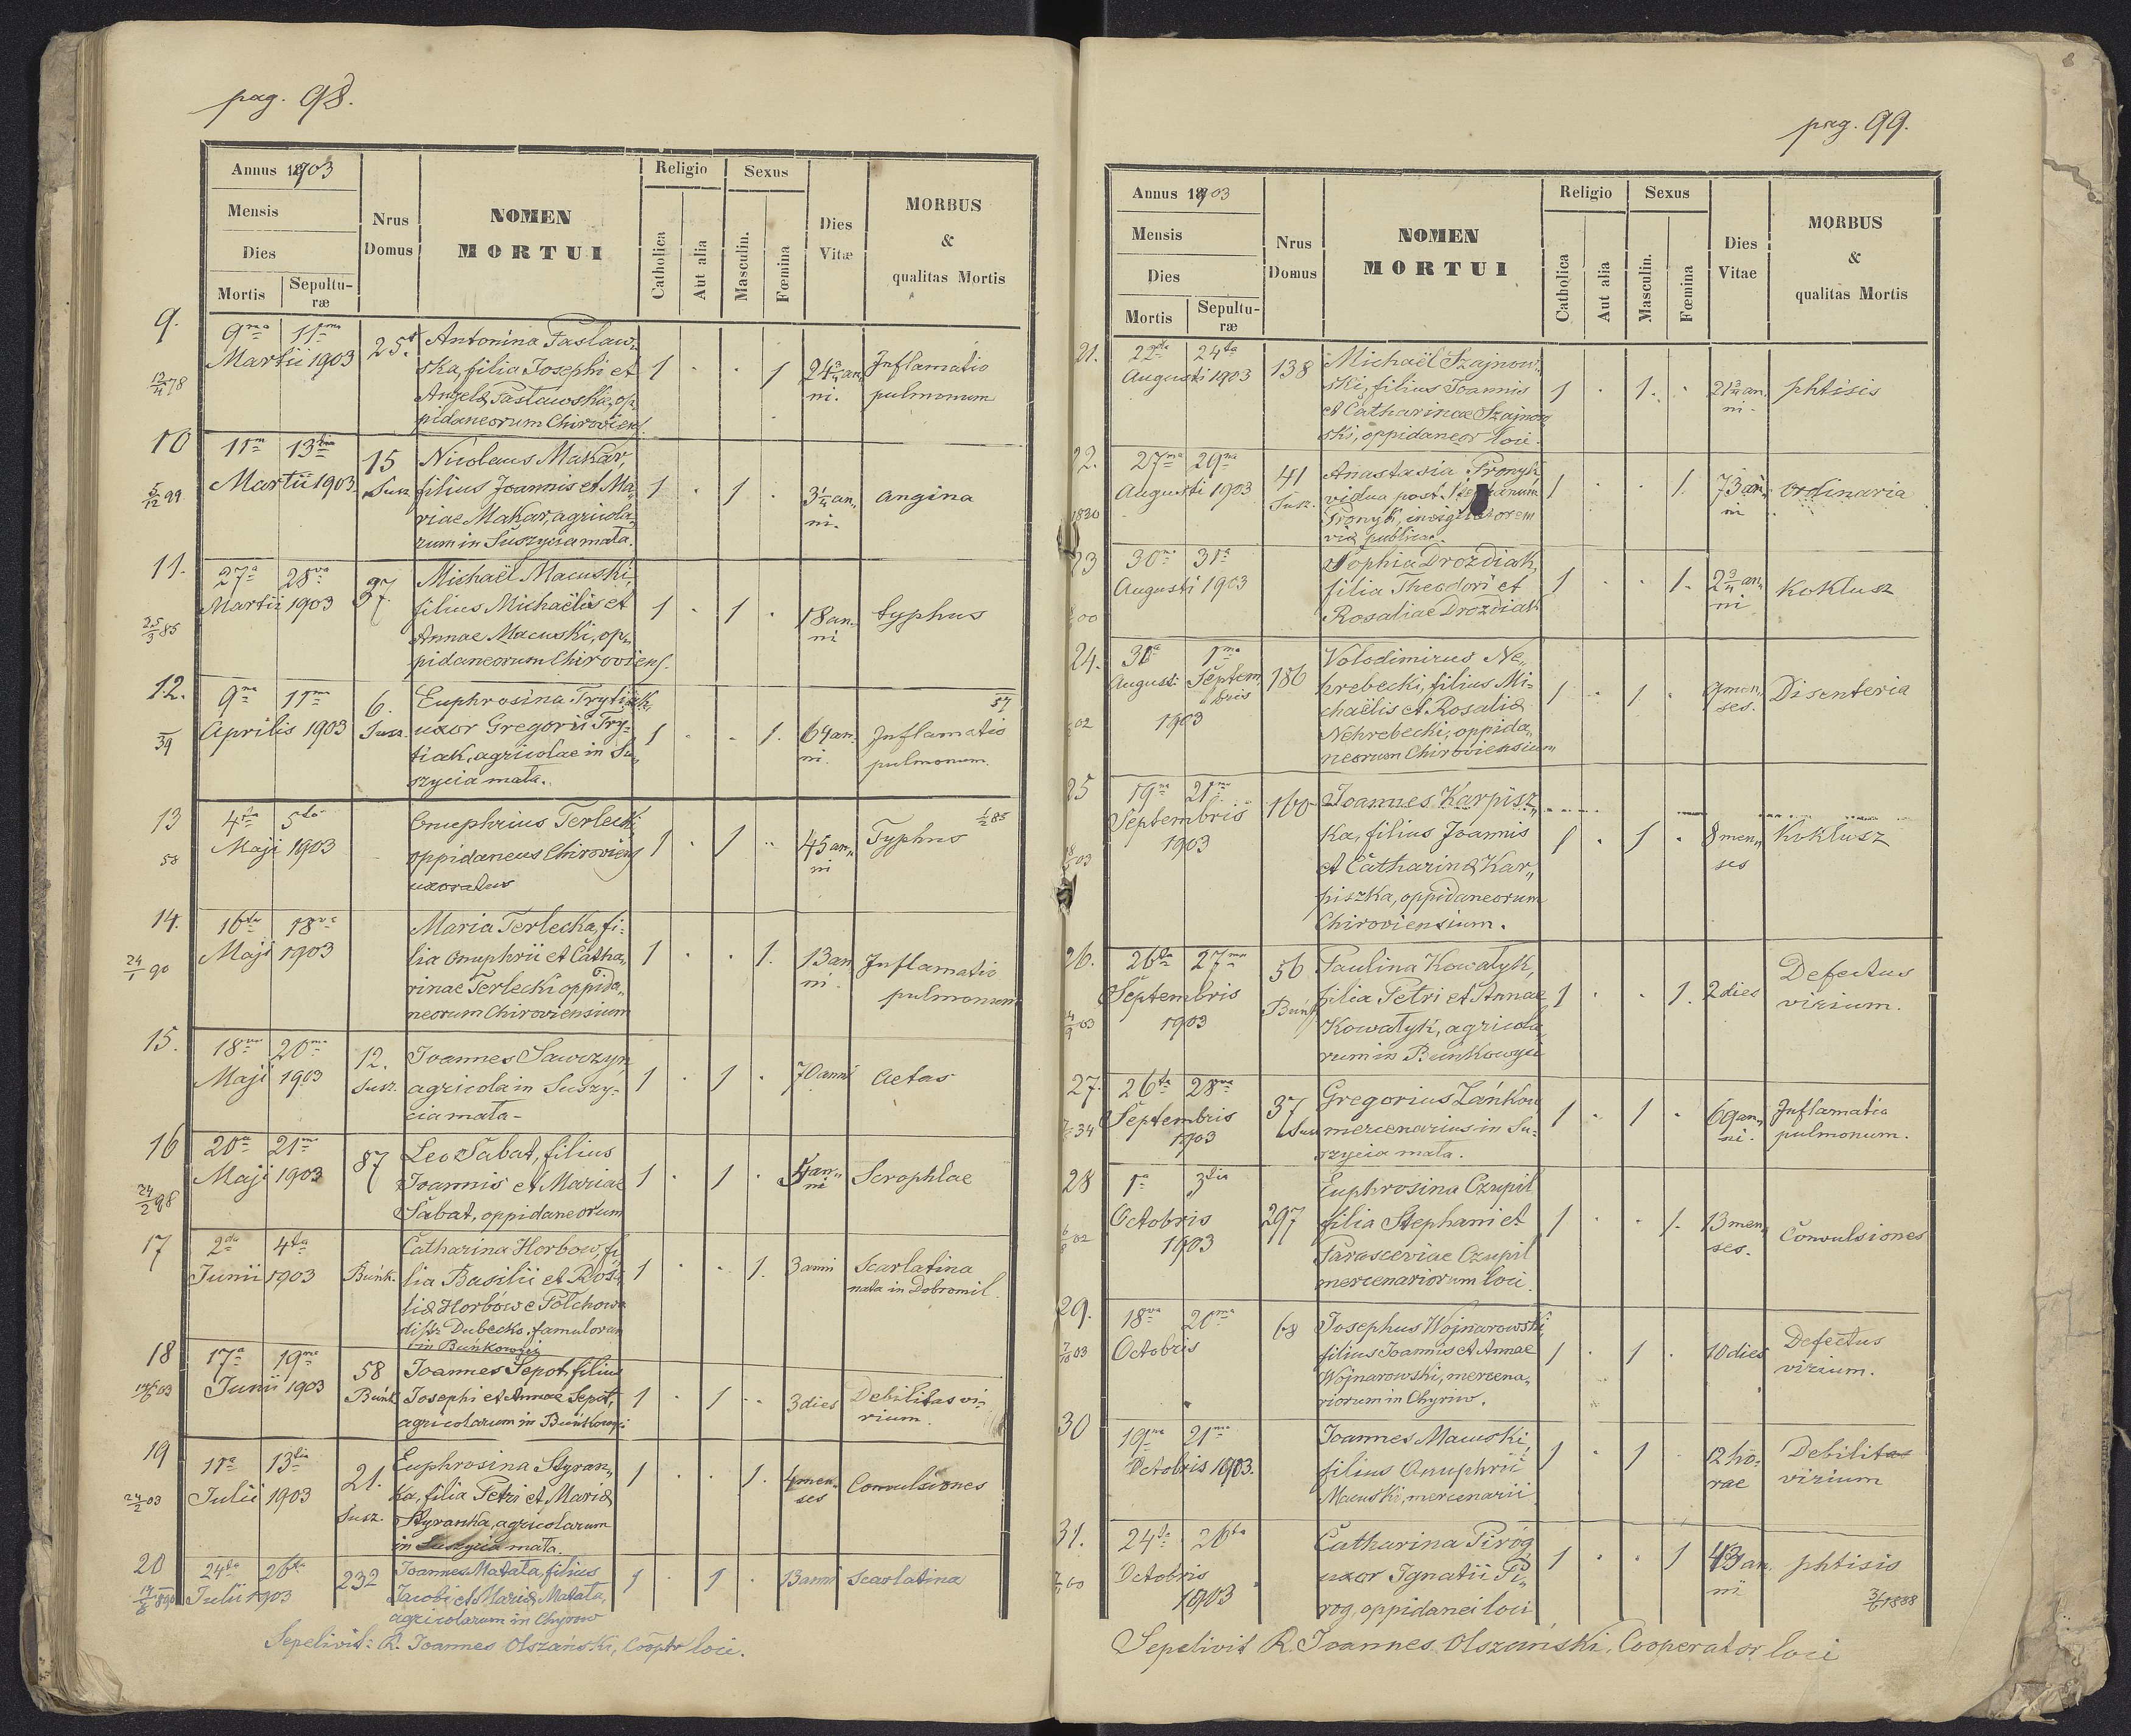 pag. 98.
Annus 1903
Mensis
Dies
Mortis
Sepulturæ
Nrus Domus
NOMEN
MORTUI
Religio
Catholica
Aut alia
Sexus
Masculin.
Fœmina
Dies Vitæ
MORBUS
&
qualitas Mortis
9.
9na 11ma
Martii 1903
Antonina Paslaw-
ska, filia Josephi et
pidaneorum Chiroviens.
1 . . 1
24 3/4 an-
ni.
Inflamatio
pulmonum
10
11ma 13tia
Martii 1903
15
Susz.
Nicolaus Makar,
filius Joannis et Ma-
riae Makar, agricola-
rum in Suszycia mała.
1 . 1 .
3 1/4 an-
ni.
angina
11.
27a 28va
Martii 1903
37.
25/3 85
Michaël Macuski,
filius Michaëlis et
Annae Macuski, op-
pidaneorum Chiroviens.
1 . 1 .
18 an-
ni
typhus
12.
9na 11ma
Aprilis 1903
39
6.
Susz.
Euphrosina Trytiak,
uxor Gregorii Try-
tiak, agricolae in Su-
szycia mała.
1 . . 1.
64 an-
ni.
Inflamatio
pulmonum.
13
4ta 5ta
Maji 1903
58
Onuphrius Terlecki,
oppidaneus Chiroviens
uxoratus
1 . 1 ..
45 an-
ni
Typhus
14.
16ta 18va
Maji 1903
24/1 90
Maria Terlecka, fi-
lia Onuphrii et Catha-
rinae Terlecki oppida-
neorum Chiroviensium
1 . . 1.
13 an
ni.
Inflamatio
pulmonum
15.
18va 20ma
Maji 1903
12.
Susz.
Joannes Sawczyn,
agricola in Suszy-
cia mała-
1 . 1 .
70 anni
aetas
16
20a 21ma
Maji 1903
24/2 98
87
Leo Sabat, filius
Joannis et Mariae
Sabat, oppidaneorum
1 . 1 .
5 an-
ni
Scrophlae
17
2da 4ta
Junii 1903
Buńk.
Catharina Horbow, fi-
lia Basilii et Rosa-
Dubecko, famulorum
in Buńkowyci
1 . . 1.
3 anni
Scarlatina
nata in Dobromil.
18
17a 19na
Junii 1903
58
Buńk
Joannes Sepot, filius
Josephi et Annae Sepot,
agricolarum in Buńkowyci
1 . 1 ..
3 dies
Debilitas vi-
rium.
19
11a 13tia
Julii 1903
24/2 03
21.
Susz.
Euphrosina Styran-
ka, filia Petri et Mariæ
Styranka, agricolarum
in Suszycia mała.
1 . . 1.
4 men-
ses
Convulsiones
20
24ta 26ta
Julii 1903
232
Joannes Matała, filius
Jacobi et Mariæ Matała,
agricolarum in Chyrow
1 . 1 .
13 anni
scarlatina
Sepelivit: R. Joannes Olszański, Cooptr loci.
pag. 99.
Annus 1903
Mensis
Dies
Mortis
Sepulturæ
Nrus Domus
NOMEN
MORTUI
Religio
Catholica
Aut alia
Sexus
Masculin.
Fœmina
Dies Vitae
MORBUS
&
qualitas Mortis
21.
22da 24ta
Augusti 1903
138
Michaël Szajnow-
ski, filius Joannis
et Catharinae Szajnow
ski, oppidaneor loci.
1 . 1. .
21 3/4 an-
ni.
phtisis
22.
27ma 29na
Augusti 1903
1830
41
Susz.
Anastasia Pronyk
vidua post
Pronyk,
viæ publicae.
1 . . 1.
73 an-
ni
ordinaria
23
30ma 31a
Augusti 1903
Sophia Drozdiak,
filia Theodori et
Rosaliae Drozdiak
1 . . 1.
2 3/4 an-
ni
Koklusz
24.
31a 1ma
Augusti Septem
bris
1903
186
Volodimirus Ne-
hrebecki, filius Mi-
chaëlis et Rosaliæ
Nehrebecki, oppida-
neorum Chiroviensium
1 . 1 .
9 men-
ses.
Disenteria
25
19na 21ma
Septembris
1903
160
Joannes Karpisz-
ka, filius Joannis
et Catharinæ Kar-
piszka, oppidaneorum
Chiroviensium.
1 . 1 .
8 men-
ses
Koklusz
26.
26ta 27ma
Septembris
1903
56
Buńk
Paulina Kowalyk,
filia Petri et Annae
Kowalyk, agricola-
rum in Bunkowyci
1 . . 1.
2 dies
Defectus
virium.
27.
26ta 28va
Septembris
1903
37
Susz
Gregorius Zańkow
mercenarius in Su-
szycia mała.
1 . 1 .
69 an-
ni.
Inflamatio
pulmonum.
28
1a 3tia
Octobris
1903
297
Euphrosina Czupil
filia Stephani et
Parasceviae Czupil
mercenariorum loci.
1 . . 1.
13 men-
ses.
Convulsiones
29.
18va 20ma
Octobris
68
Josephus Wojnarowski
filius Joannis et Annae
Wojnarowski, mercena-
riorum in Chyriw.
1 . 1 .
10 dies
Defectus
virium.
30
19na 21ma
Octobris 1903.
Joannes Macuski,
filius Onuphrii
Macuski, mercenarii
1 . 1
12 ho-
rae
Debilitas
virium
31.
24ta 26ta
Octobris
1903
Catharina Piróg
uxor Ignatii Pi-
rog, oppidanei loci
1 . . 1
43 an-
ni
phtisis
Sepelivit R. Joannes Olszański, Cooperator loci